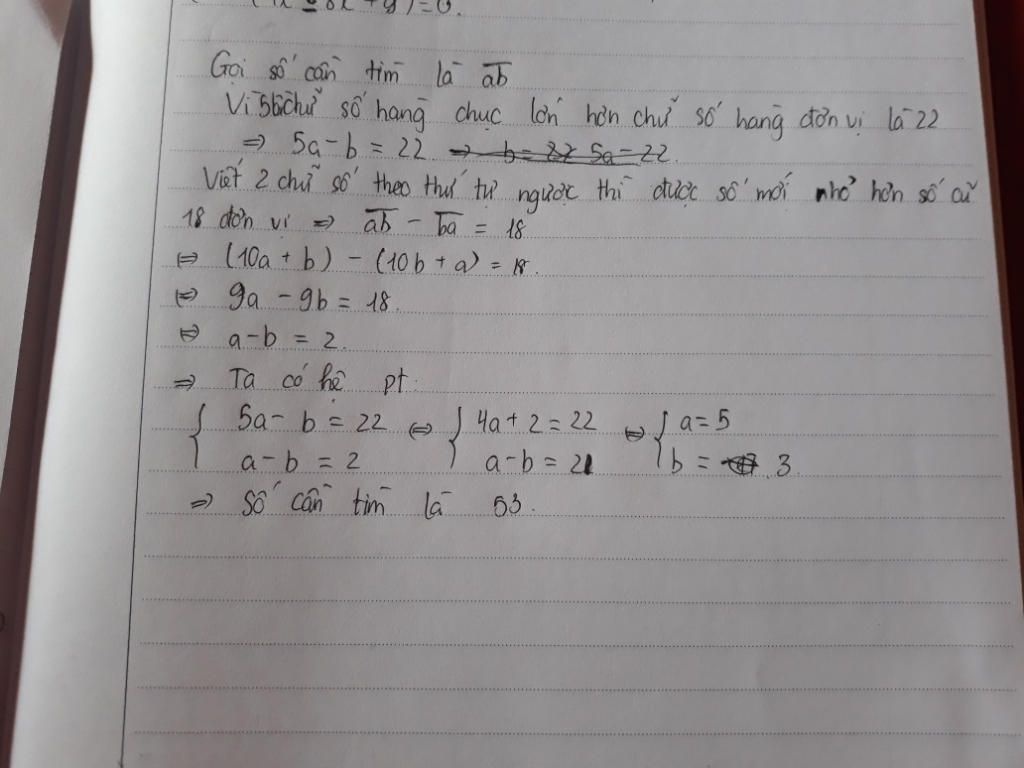 Gọi số cần tìm là ab
Vì 5lần chữ số hàng chục lớn hơn chữ số hàng đơn vị là 22
⇒ 5a - b = 22 ⇒ b = 22 5a - 22
Viết 2 chữ số theo thứ tự ngược thì được số mới nhỏ hơn số cũ
18 đơn vị ⇒ ab - ba = 18
⇔ (10a + b) - (10b + a) = 18.
⇔ 9a - 9b = 18.
⇔ a - b = 2.
⇒ Ta có hệ pt:
{ 5a - b = 22 ⇔ { 4a + 2 = 22 ⇔ { a = 5
a - b = 2 a - b = 2 b = 3
⇒ Số cần tìm là 53.